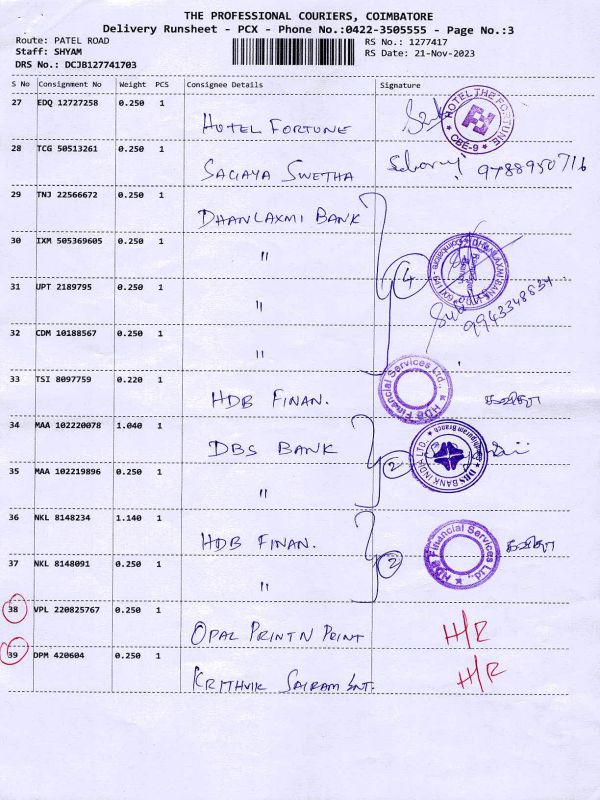 THE PROFESSIONAL COURIERS, COIMBATORE
Delivery Runsheet - PCX - Phone No.:0422-3505555 - Page No.:3
Route: PATEL ROAD
RS No.: 1277417
Staff: SHYAM
RS Date: 21-Nov-2023
DRS No.: DCJB127741703
S No Consignment No Weight PCS Consignee Details Signature
27 EDQ 12727258 0.250 1
HOTEL FORTUNE
HOTEL THE FORTUNE
CBE-9
28 TCG 50513261 0.250 1
SAGAYA SWETHA 9788950716
29 TNJ 22566672 0.250 1
DHANLAXMI BANK
30 IXM 505369605 0.250 1
"
4
31 UPT 2189795 0.250 1
"
9943348834
32 CDM 10188567 0.250 1
"
33 TSI 8097759 0.220 1
HDB FINAN.
HDB Financial Services Ltd.
கவிதா
34 MAA 102220078 1.040 1
DBS BANK
DBS BANK INDIA LTD.
2
35 MAA 102219896 0.250 1
"
36 NKL 8148234 1.140 1
HDB FINAN.
HDB Financial Services Ltd.
கவிதா
2
37 NKL 8148091 0.250 1
"
38 VPL 220825767 0.250 1
OPAL PRINT N PRINT H/R
39 DPM 420604 0.250 1
KRITHVIK SAIRAM ENT. H/R